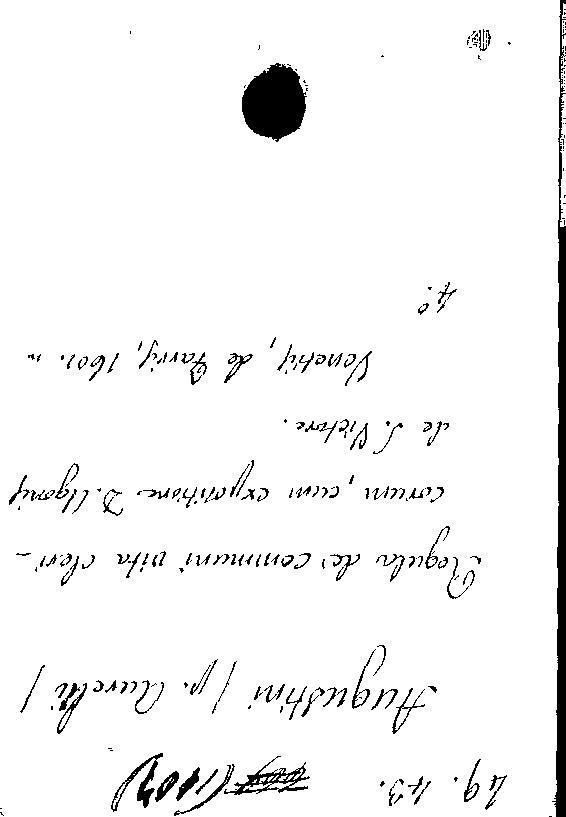 49. 43.
Augustini (p. Aurelii)
Regula de communi vita cleri-
corum, cum expositione D. Ugonis
de S. Victore.
Venetijs, de Farris, 1601. in
4º.